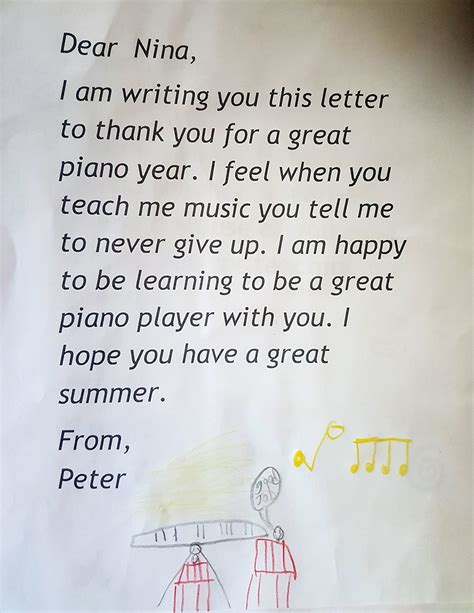 Dear Nina,
I am writing you this letter
to thank you for a great
piano year. I feel when you
teach me music you tell me
to never give up. I am happy
to be learning to be a great
piano player with you. I
hope you have a great
summer.
From,
Peter
good
Job